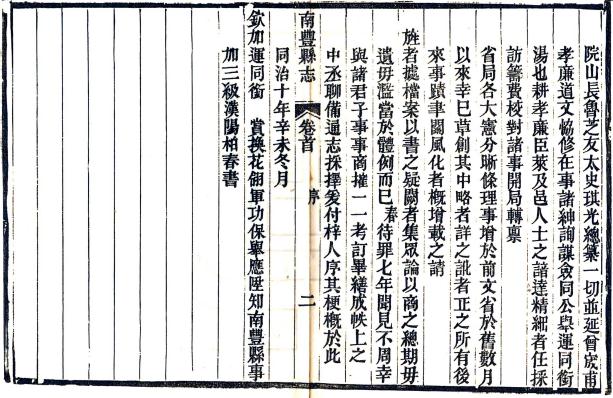 院山長魯芝友太史琪光總纂一切並延曾宬甫
孝廉道文協修在事諸紳詢謀僉同公舉運同銜
湯也耕孝廉臣萊及邑人士之諳達精細者任採
訪籌費校對諸事開局轉稟
省局各大憲分晰條理事增於前文省於舊數月
以來幸已草創其中略者詳之訛者正之所有後
來事蹟聿關風化者概增載之請
旌者據檔案以書之疑闕者集眾論以商之總期毋
遺毋濫當於體例而已春待罪七年聞見不周幸
與諸君子事事商搉一一考訂畢繕成帙上之
中丞聊備通志採擇爰付梓人序其梗概於此
同治十年辛未冬月
南豐縣志
卷首
序
二
欽加運同銜 賞換花翎軍功保舉應陞知南豐縣事
加三級漢陽柏春書